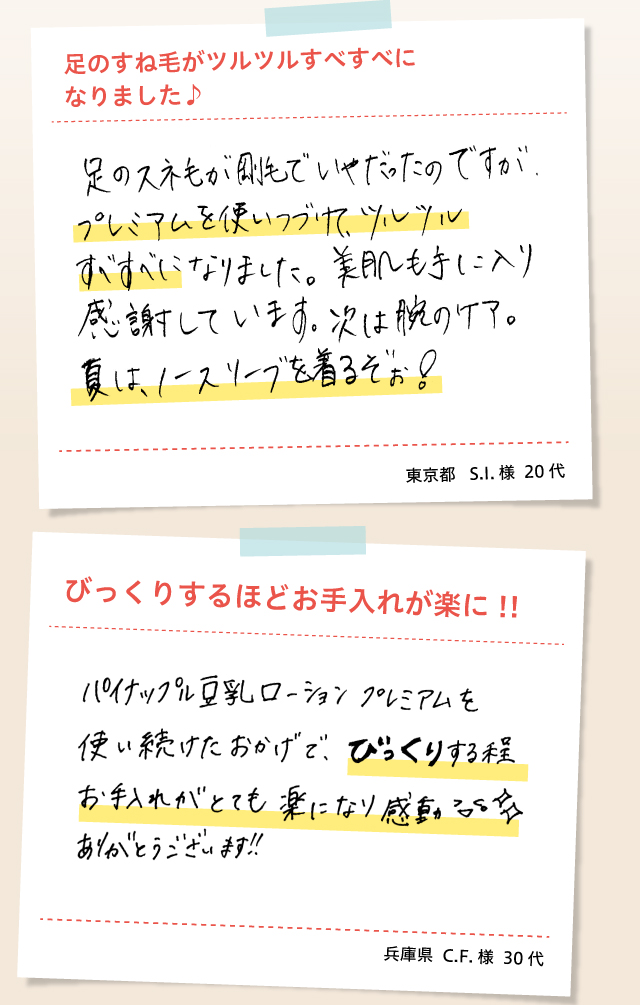 足のすね毛がツルツルすべすべに
なりました♪
足のスネ毛が剛毛でいやだったのですが、
プレミアムを使いつづけて、ツルツル
すべすべになりました。美肌も手に入り
感謝しています。次は腕のケア。
夏は、ノースリーブを着るぞぉ!
東京都 S.I.様 20代
びっくりするほどお手入れが楽に!!
パイナップル豆乳ローション プレミアムを
使い続けたおかげで、びっくりする程
お手入れがとても楽になり感動
ありがとうございます!!
兵庫県 C.F.様 30代